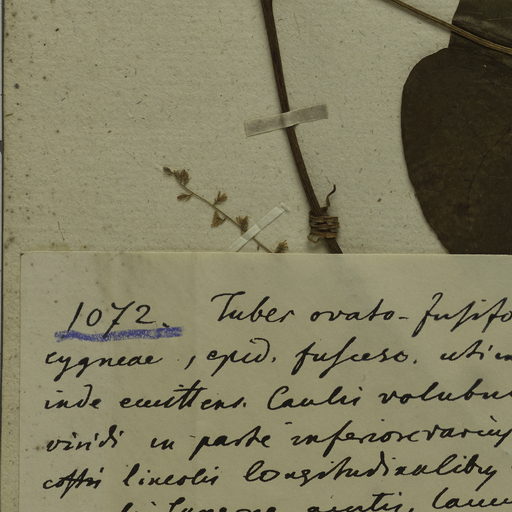 1072. Tuber ovato-fusifo
cygneae, epid. fusces.
inde emittens. Caulis volubu
viridi in parte inferiore varius
costis lineolis longitudinalibus